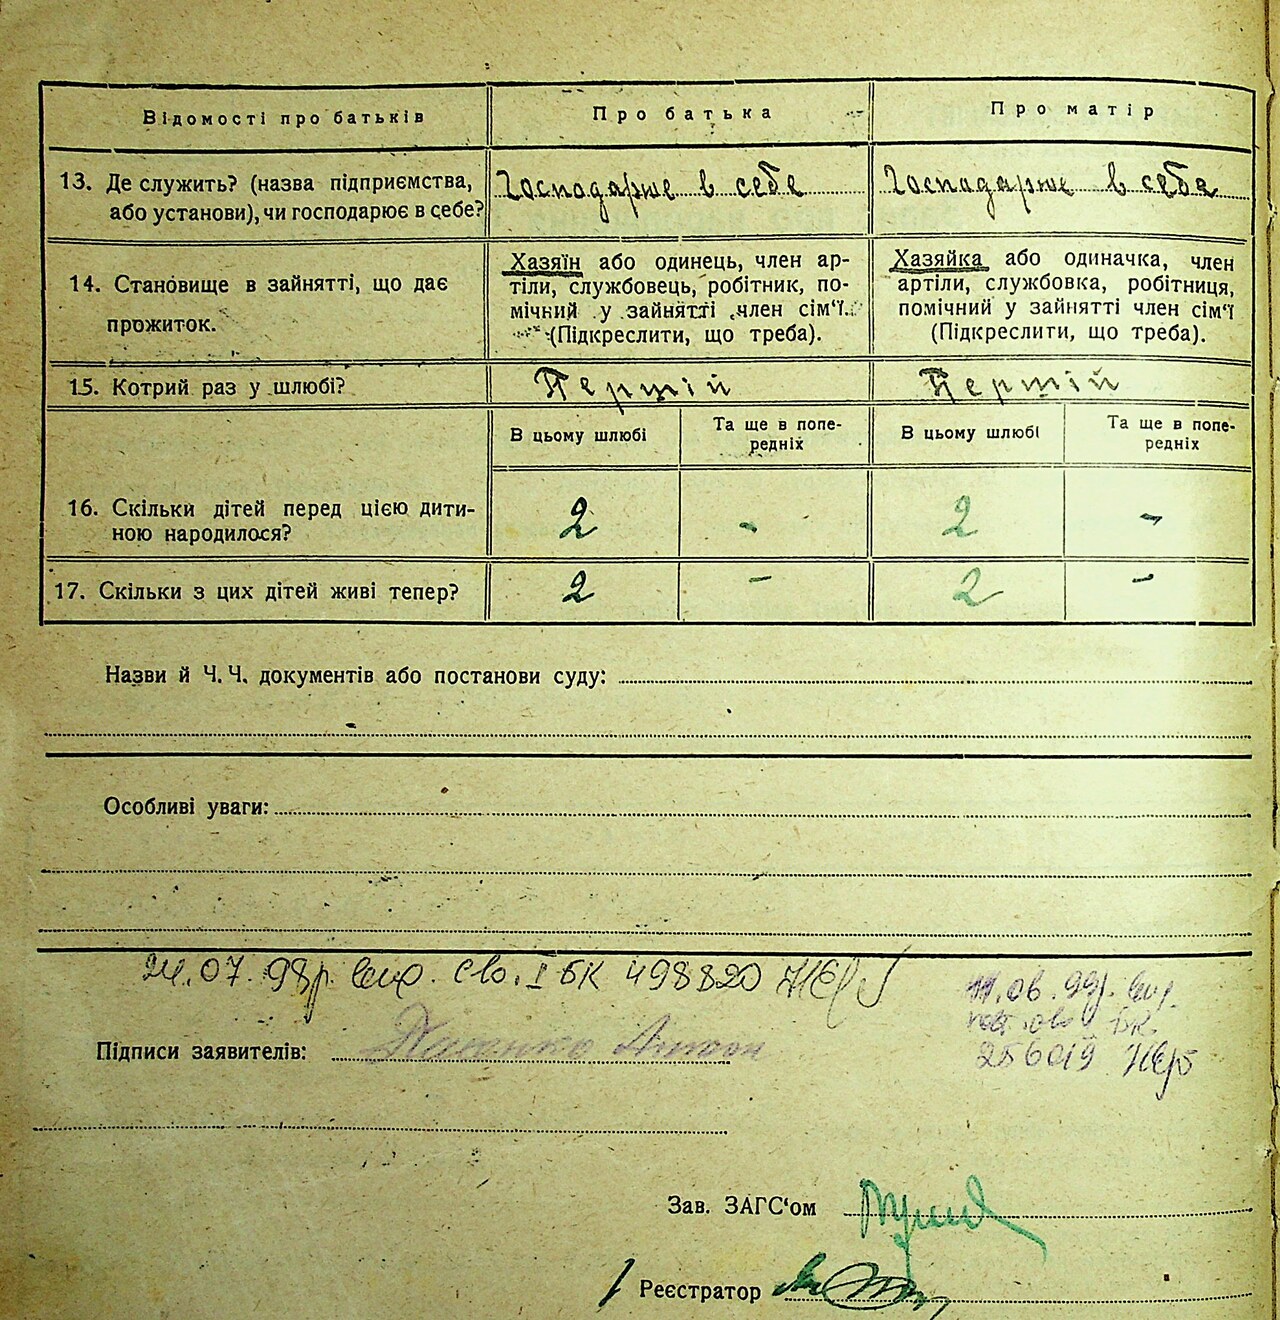 Відомості про батьків Про батька Про матір
13. Де служить? (назва підприємства, або установи), чи господарює в себе?
Господарює в себе
Господарює в себе
14. Становище в зайнятті, що дає прожиток.
Хазяїн або одинець, член ар-
тілі, службовець, робітник, по-
мічний у зайнятті член сім'ї.
(Підкреслити, що треба).
Хазяйка або одиначка, член
артіли, службовка, робітниця,
помічний у зайнятті член сім'ї
(Підкреслити, що треба).
15. Котрий раз у шлюбі? Першій Першій
В цьому шлюбі Та ще в попе-
редніх В цьому шлюбі Та ще в попе-
редніх
16. Скільки дітей перед цією дити-
ною народилося? 2 - 2 -
17. Скільки з цих дітей живі тепер? 2 - 2 -
Назви й Ч.Ч. документів або постанови суду:
Особливі уваги:
24.07.98р. св. І БК 498820
11.06.99р.
БК
256019
Підписи заявителів: Антон
Зав. ЗАГС'ом
Реєстратор